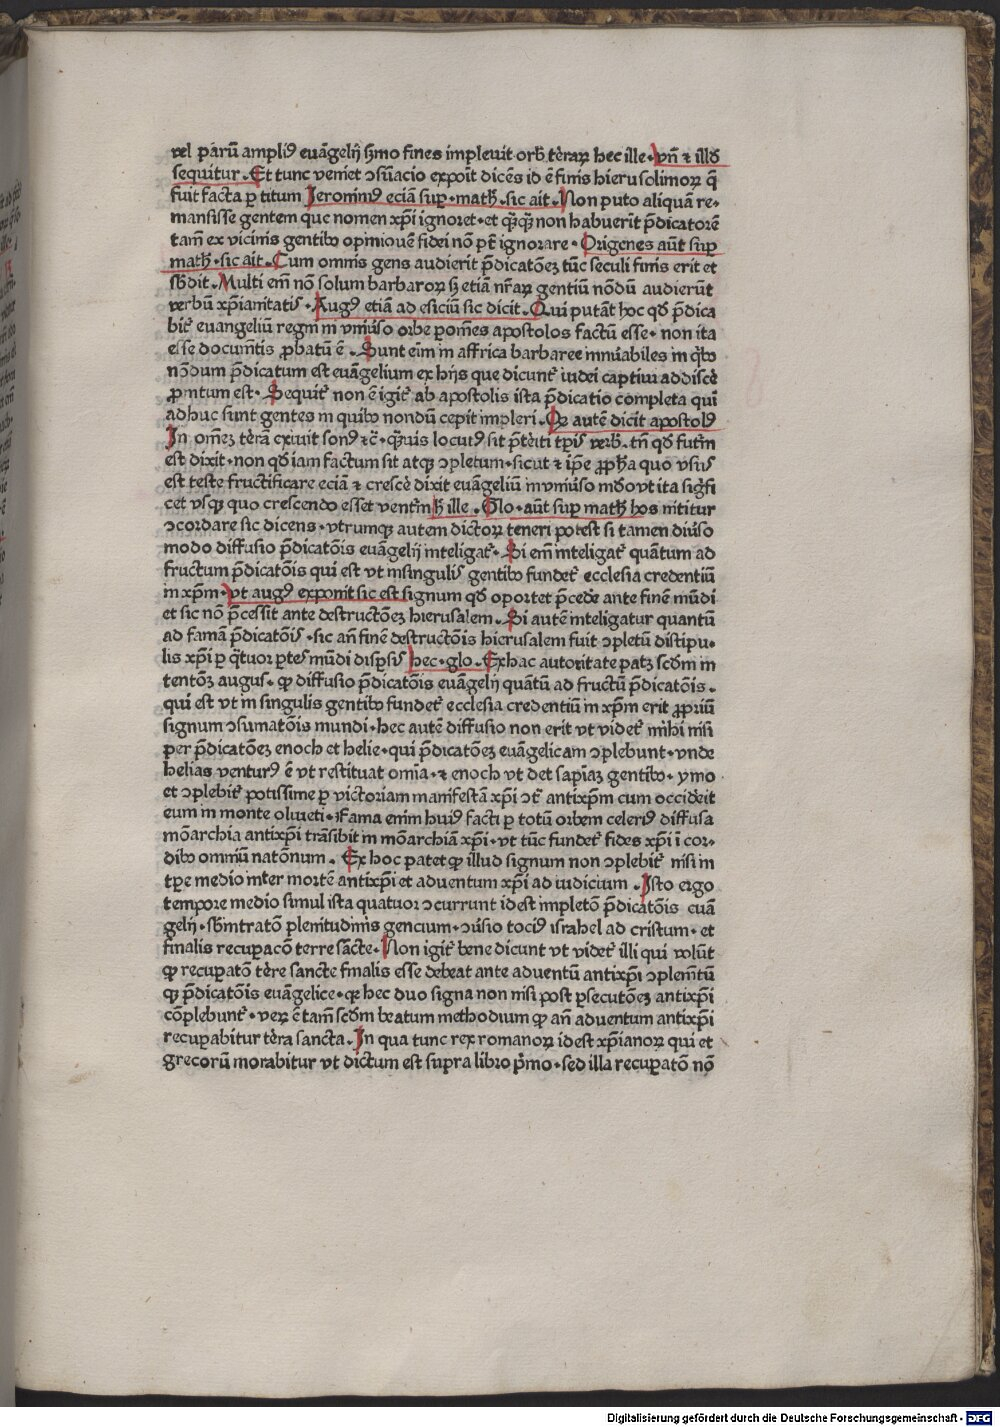 vel parū ampliꝰ euāgelij sermo fines impleuit orbꝭ terraꝝ hec ille · Vn̄ ⁊ illd̄
sequitur · Et tunc veniet ↄsūacio exponit dicēs id ē finis hierusolimoꝝ q̄
fuit facta ꝑ titum Jeronimꝰ eciā suꝑ · math̄ · sic ait · Non puto aliquā re⸗
mansisse gentem que nomen xp̄i ignoret · et qᷓꝫqᷓꝫ non habuerit p̄dicatorē
tam̄ ex vicinis gentibꝰ opinionē fidei nō pt̄ ignorare · Origenes aūt suꝑ
math̄ · sic ait · Cum omnis gens audierit p̄dicatōeꝫ tūc seculi finis erit et
sb̄dit · Multi em̄ nō solum barbaroꝝ sꝫ etiā nr̄aꝝ gentiū nōdū audierūt
verbū xp̄ianitatis · Augꝰ etiā ad esiciū sic dicit · Qui putāt hoc qd̄ p̄dica
bit᷑ euangeliū regni in vniuerso orbe per om̄es apostolos factū esse · non ita
esse documētis ꝓbatū ē · Sunt eim̄ in affrica barbaree innūabiles in qͥbꝰ
nōdum p̄dicatum est euāgelium ex hijs que dicunt᷑ inde captiui addiscē
ꝓmtum est · Sequit᷑ non ē igit᷑ ab apostolis ista p̄dicatio completa qui
adhuc sunt gentes in quibꝰ nondū cepit impleri · Qꝛ autē dicit apostolꝰ
In om̄eꝫ terrā exiuit sonꝰ ⁊c̄ · qᷓꝫuis locutꝰ sit p̄teriti tꝑis verb̄ · tn̄ qd̄ futur̄m
est dixit · non qd̄ iam factum sit atqꝫ ↄpletum · sicut ⁊ ip̄e ꝓph̄a quo vsus
est teste fructificare eciā ⁊ crescē dixit euāgeliū in vniuerso mūdo vt ita sigr̄fi
cet vsqꝫ quo crescendo esset ventur̄m h̄ ille · Glo · aūt suꝑ math̄ hos nititur
ↄcordare sic dicens · vtrumqꝫ autem dictoꝝ teneri potest si tamen diuerso
modo diffusio p̄dicatōis euāgelij inteligat᷑ · Si em̄ inteligat᷑ quātum ad
fructum p̄dicatōis qui est vt in singulis gentibꝰ fundet᷑ ecclesia credentiū
in xp̄m · Vt augꝰ exponit sic est signum qd̄ oportet p̄cedē ante finē mūdi
et sic nō p̄cessit ante destructōeꝫ hierusalem · Si autē inteligatur quantū
ad famā p̄dicatōis · sic an̄ finē destructōis hierusalem fuit ↄpletū discipu⸗
lis xp̄i ꝑ qᷓtuor ꝑtes mūdi disꝑsis hec · glo · Ex hac autoritate patꝫ scd̄m in
tentōeꝫ augus · ꝙ diffusio p̄dicatōis euāgelij quātū ad fructū p̄dicatōis ·
qui est vt in singulis gentibꝰ fundet᷑ ecclesia credentiū in xp̄m erit ꝓpriū
signum ↄsumatōis mundi · hec autē diffusio non erit vt videt᷑ mihi nisi
per p̄dicatōeꝫ enoch et helie · qui p̄dicatōeꝫ euāgelicam ↄplebunt · vnde
helias venturꝰ ē vt restituat omīa · ⁊ enoch vt det sapīaꝫ gentibꝰ · ymo
et ↄplebit᷑ potissime ꝑ victoriam manifestā xp̄i ↄt᷑ antixp̄m cum occiderit
eum in monte oliueti · Fama enim huiꝰ facti ꝑ totū orbem celeriꝰ diffusa
mōarchia antixp̄i trāsibit in mōarchiā xp̄i · vt tūc fundet᷑ fides xp̄i ī cor⸗
dibꝰ omniū natōnum · Ex hoc patet ꝙ illud signum non ↄplebit᷑ nisi in
tꝑe medio inter mortē antixp̄i et aduentum xp̄i ad iudicium · Isto ergo
tempore medio simul ista quatuor ↄcurrunt id est impletō p̄dicatōis euā
gelij · sb̄intratō plenitudinis gencium · ↄuersio tociꝰ israhel ad cristum · et
finalis recuperacō terre sācte · Non igit᷑ bene dicunt vt videt᷑ illi qui volūt
ꝙ recuperatō terre sancte finalis esse debeat ante aduentū antixp̄i ↄplem̄tū
qꝫ p̄dicatōis euāgelice · qꝛ hec duo signa non nisi post ꝑsecutōeꝫ antixp̄i
cōplebunt᷑ · veꝝ ē tam̄ scd̄m beatum methodium ꝙ an̄ aduentum antixp̄i
recuperabitur terra sancta · In qua tunc rex romanoꝝ id est xp̄ianoꝝ qui et
grecorū morabitur vt dictum est supra libro p̄mo · sed illa recuperatō nō
Digitalisierung gefördert durch die Deutsche Forschungsgemeinschaft - DFG